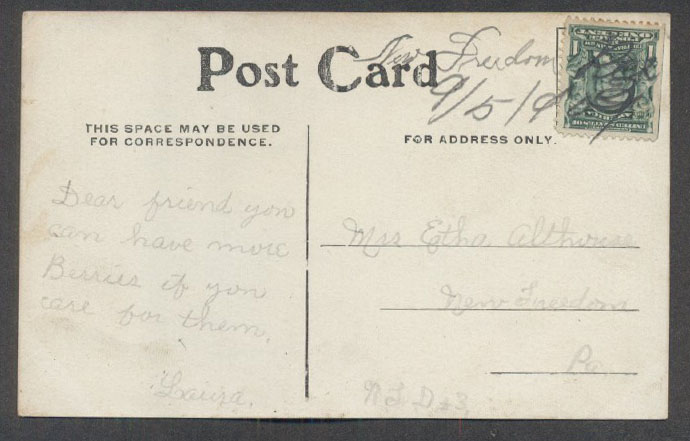 Post Card
New Freedom
9/5/
THIS SPACE MAY BE USED
FOR CORRESPONDENCE.
FOR ADDRESS ONLY.
Dear friend you
can have more
Berries if you
care for them.
Laura.
Mrs Etha Althouse
New Freedom
Pa